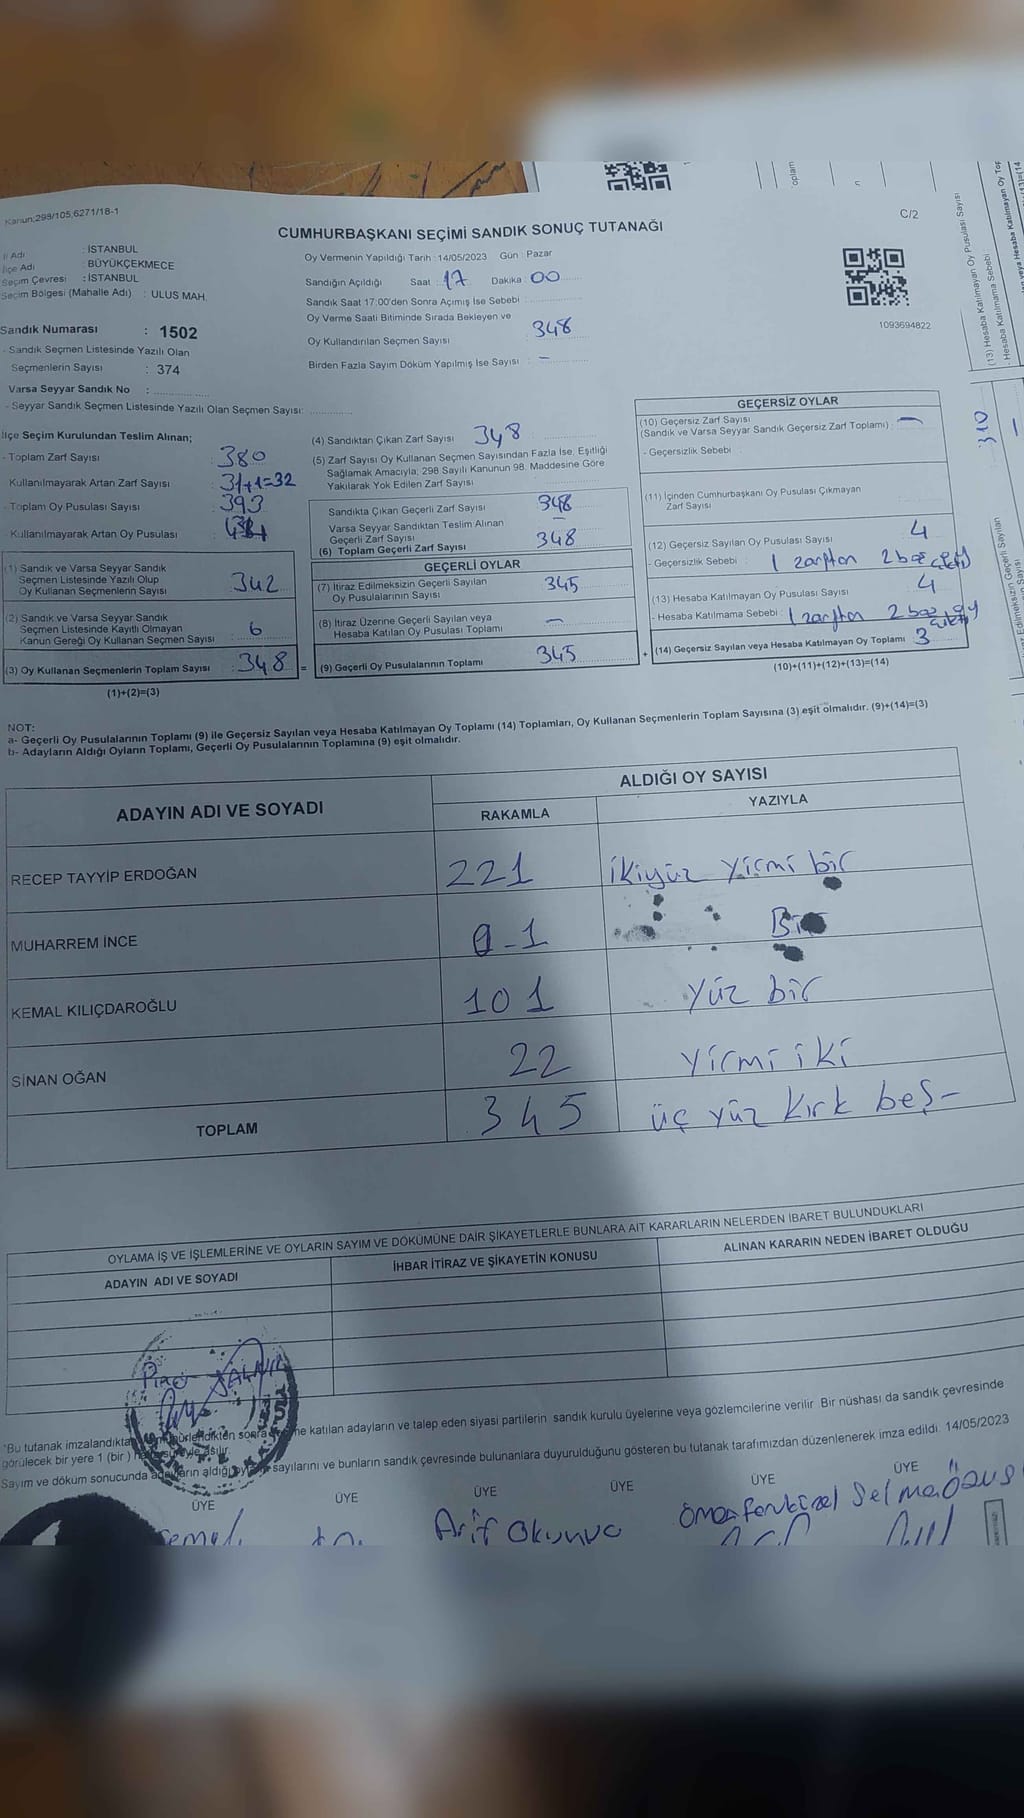 Kanun;298/105,6271/18-1
C/2
CUMHURBAŞKANI SEÇİMİ SANDIK SONUÇ TUTANAĞI
İl Adı : İSTANBUL
İlçe Adı : BÜYÜKÇEKMECE
Seçim Çevresi : İSTANBUL
Seçim Bölgesi (Mahalle Adı) : ULUS MAH.
Oy Vermenin Yapıldığı Tarih : 14/05/2023 Gün : Pazar
Sandığın Açıldığı Saat : 17 Dakika : 00
Sandık Saat 17:00'den Sonra Açımış İse Sebebi :
Oy Verme Saati Bitiminde Sırada Bekleyen ve
Oy Kullandırılan Seçmen Sayısı : 348
Birden Fazla Sayım Döküm Yapılmış İse Sayısı : -
1093694822
Sandık Numarası : 1502
- Sandık Seçmen Listesinde Yazılı Olan
Seçmenlerin Sayısı : 374
Varsa Seyyar Sandık No :
- Seyyar Sandık Seçmen Listesinde Yazılı Olan Seçmen Sayısı:
İlçe Seçim Kurulundan Teslim Alınan;
- Toplam Zarf Sayısı : 380
Kullanılmayarak Artan Zarf Sayısı : 31+1=32
- Toplam Oy Pusulası Sayısı : 393
- Kullanılmayarak Artan Oy Pusulası :
(1) Sandık ve Varsa Seyyar Sandık
Seçmen Listesinde Yazılı Olup
Oy Kullanan Seçmenlerin Sayısı : 342
(2) Sandık ve Varsa Seyyar Sandık
Seçmen Listesinde Kayıtlı Olmayan
Kanun Gereği Oy Kullanan Seçmen Sayısı : 6
(3) Oy Kullanan Seçmenlerin Toplam Sayısı : 348
(1)+(2)=(3)
(4) Sandıktan Çıkan Zarf Sayısı : 348
(5) Zarf Sayısı Oy Kullanan Seçmen Sayısından Fazla İse, Eşitliği
Sağlamak Amacıyla; 298 Sayılı Kanunun 98. Maddesine Göre
Yakılarak Yok Edilen Zarf Sayısı :
Sandıkta Çıkan Geçerli Zarf Sayısı : 348
Varsa Seyyar Sandıktan Teslim Alınan
Geçerli Zarf Sayısı : -
(6) Toplam Geçerli Zarf Sayısı : 348
GEÇERLİ OYLAR
(7) İtiraz Edilmeksizin Geçerli Sayılan
Oy Pusulalarının Sayısı : 345
(8) İtiraz Üzerine Geçerli Sayılan veya
Hesaba Katılan Oy Pusulası Toplamı : -
= (9) Geçerli Oy Pusulalarının Toplamı : 345
GEÇERSİZ OYLAR
(10) Geçersiz Zarf Sayısı
(Sandık ve Varsa Seyyar Sandık Geçersiz Zarf Toplamı) : -
- Geçersizlik Sebebi :
(11) İçinden Cumhurbaşkanı Oy Pusulası Çıkmayan
Zarf Sayısı :
(12) Geçersiz Sayılan Oy Pusulası Sayısı : 4
- Geçersizlik Sebebi : 1 zarftan 2
(13) Hesaba Katılmayan Oy Pusulası Sayısı : 4
- Hesaba Katılmama Sebebi : 1 zarftan 2
+ (14) Geçersiz Sayılan veya Hesaba Katılmayan Oy Toplamı : 3
(10)+(11)+(12)+(13)=(14)
NOT:
a- Geçerli Oy Pusulalarının Toplamı (9) ile Geçersiz Sayılan veya Hesaba Katılmayan Oy Toplamı (14) Toplamları, Oy Kullanan Seçmenlerin Toplam Sayısına (3) eşit olmalıdır. (9)+(14)=(3)
b- Adayların Aldığı Oyların Toplamı, Geçerli Oy Pusulalarının Toplamına (9) eşit olmalıdır.
ADAYIN ADI VE SOYADI
ALDIĞI OY SAYISI
RAKAMLA
YAZIYLA
RECEP TAYYİP ERDOĞAN 221 ikiyüz yirmi bir
MUHARREM İNCE 0-1 Bir
KEMAL KILIÇDAROĞLU 101 yüz bir
SİNAN OĞAN 22 yirmi iki
TOPLAM 345 üç yüz kırk beş-
OYLAMA İŞ VE İŞLEMLERİNE VE OYLARIN SAYIM VE DÖKÜMÜNE DAİR ŞİKAYETLERLE BUNLARA AİT KARARLARIN NELERDEN İBARET BULUNDUKLARI
ADAYIN ADI VE SOYADI
İHBAR İTİRAZ VE ŞİKAYETİN KONUSU
ALINAN KARARIN NEDEN İBARET OLDUĞU
*Bu tutanak imzalandıktan katılan adayların ve talep eden siyasi partilerin sandık kurulu üyelerine veya gözlemcilerine verilir. Bir nüshası da sandık çevresinde
görülecek bir yere 1 (bir) asılır.
Sayım ve döküm sonucunda adayların aldığı sayılarını ve bunların sandık çevresinde bulunanlara duyurulduğunu gösteren bu tutanak tarafımızdan düzenlenerek imza edildi. 14/05/2023
ÜYE ÜYE ÜYE ÜYE ÜYE ÜYE
Arif
(13) Hesaba Katılmayan Oy Pusulası Sayısı
- Hesaba Katılmama Sebebi
310